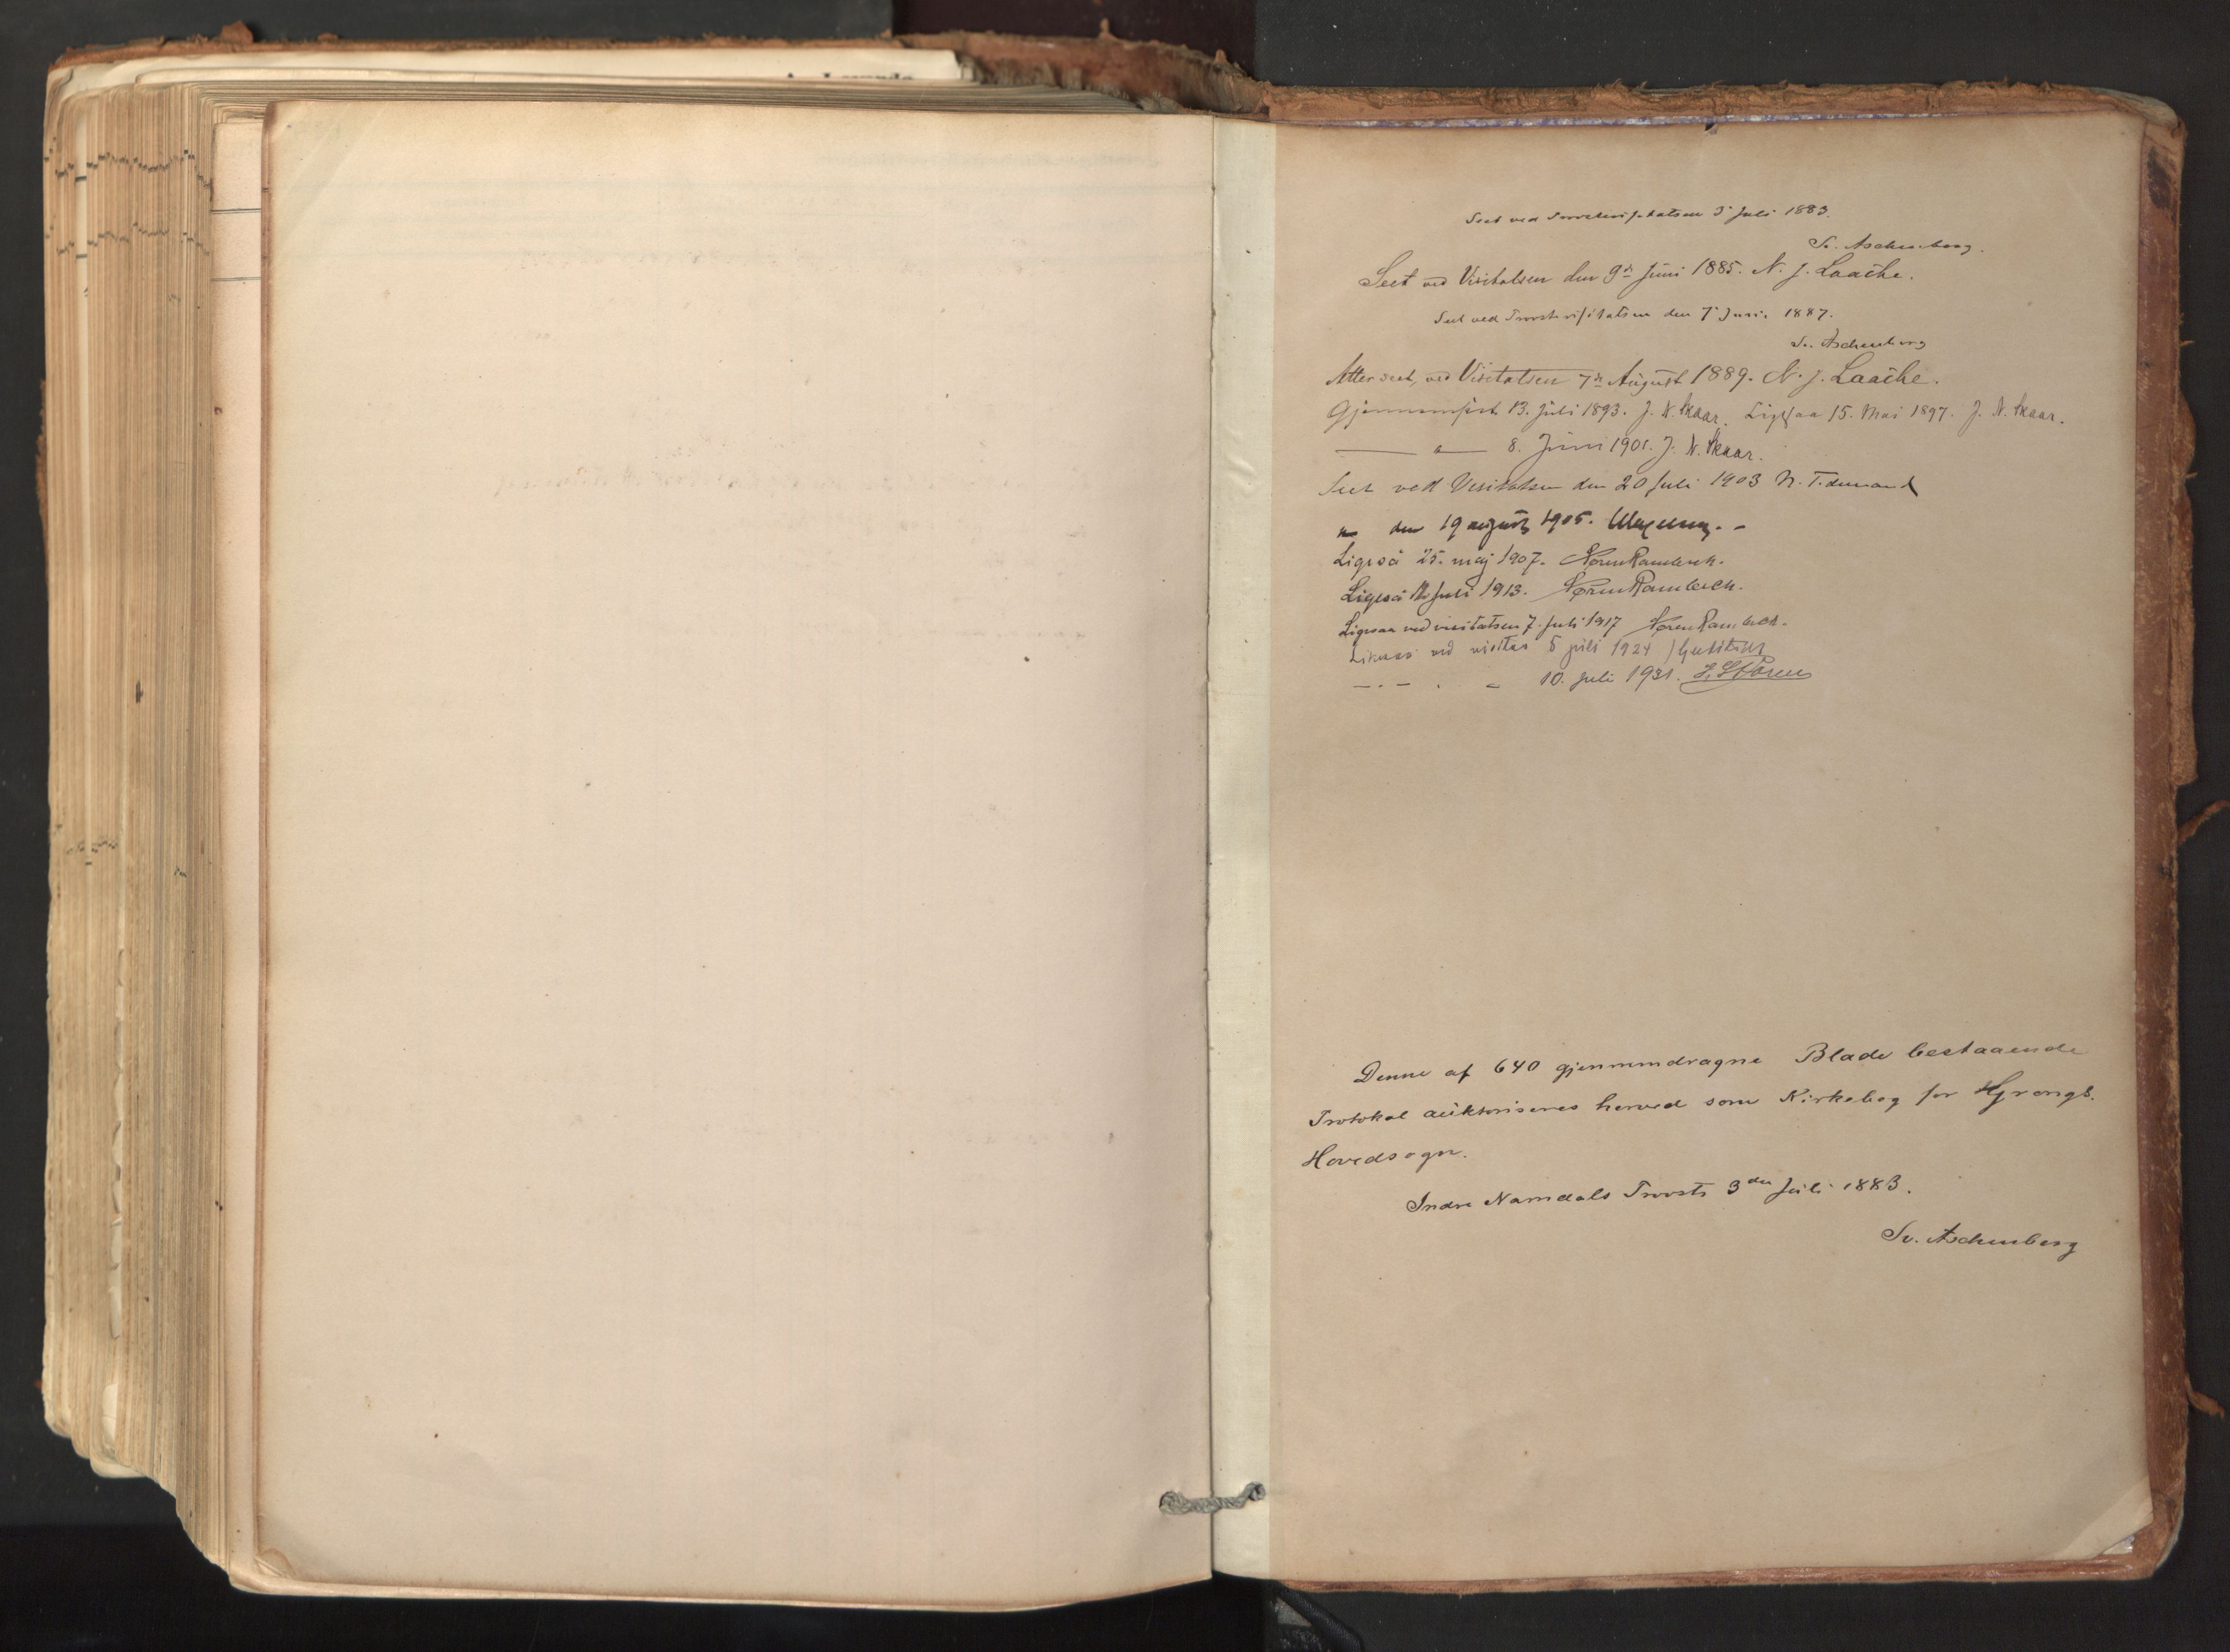 Seet ved Provstevisitatsen 3' Juli 1883.
Sv. Aschenberg.
Seet ved Visitatsen den 9de Juni 1885. N. J. Laache.
Seet ved Provstevisitatsen den 7' Juni 1887.
Sv. Aschenberg
Atter seet, ved Visitatsen 7de August 1889. N. J. Laache.
Gjennemseet 13. Juli 1893. J. N. Skaar. Ligesaa 15. Mai 1897. J. N. Skaar.
—— " —— 8. Juni 1901. J. N. Skaar.
Seet ved Visitatsen den 20 Juli 1903 N. Tidemand
" den 19 august 1905.
Ligeså 25. maj 1907. Sören
Ligeså Juli 1913. Sören
Ligesaa ved visitatsen 7. Juli 1917 Sören
Likesaa ved visitas 5 juli 1924
— . — . „ 10. juli 1931. J. Støren
Denne af 640 gjennemdragne Blade bestaaende
Protokol auktoriseres herved som Kirkebog for Grongs
Hovedsogn.
Indre Namdals Provsti 3den Juli 1883.
Sv. Aschenberg